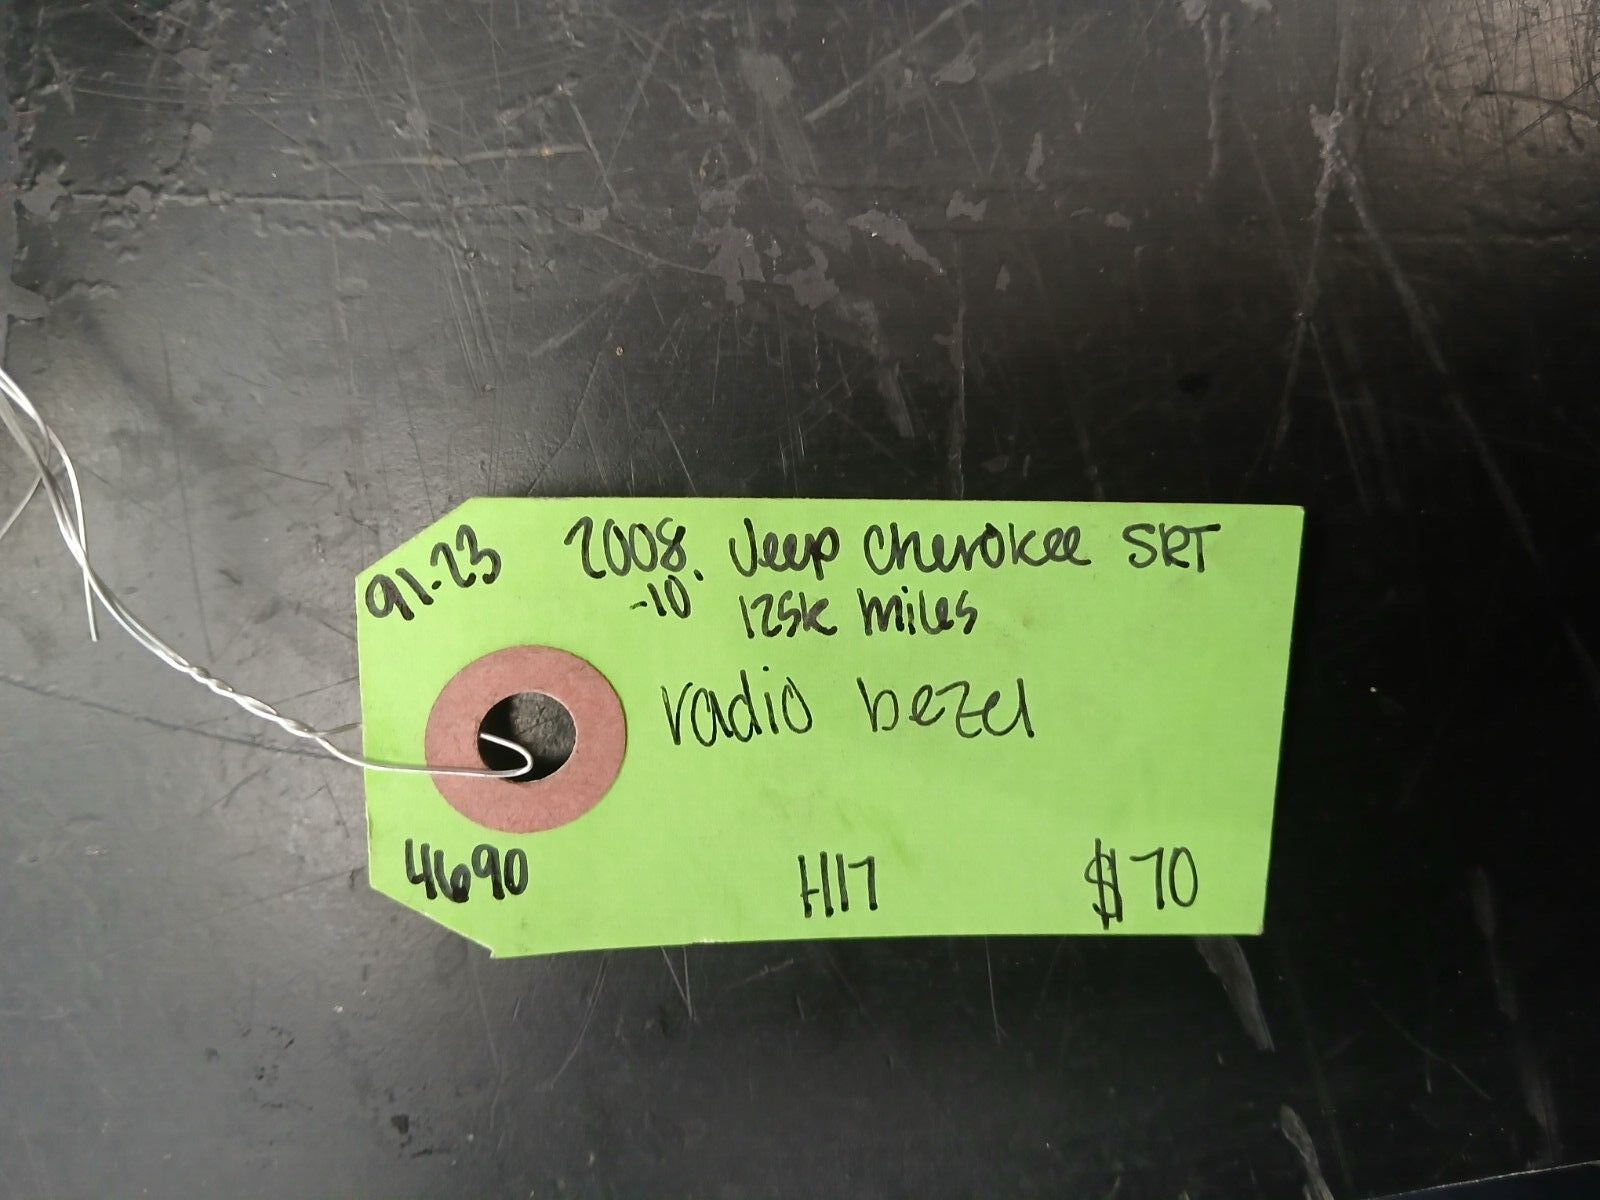 91-23 2008 Jeep Cherokee SRT
-10 125k miles
radio bezel
4690 H17 $70